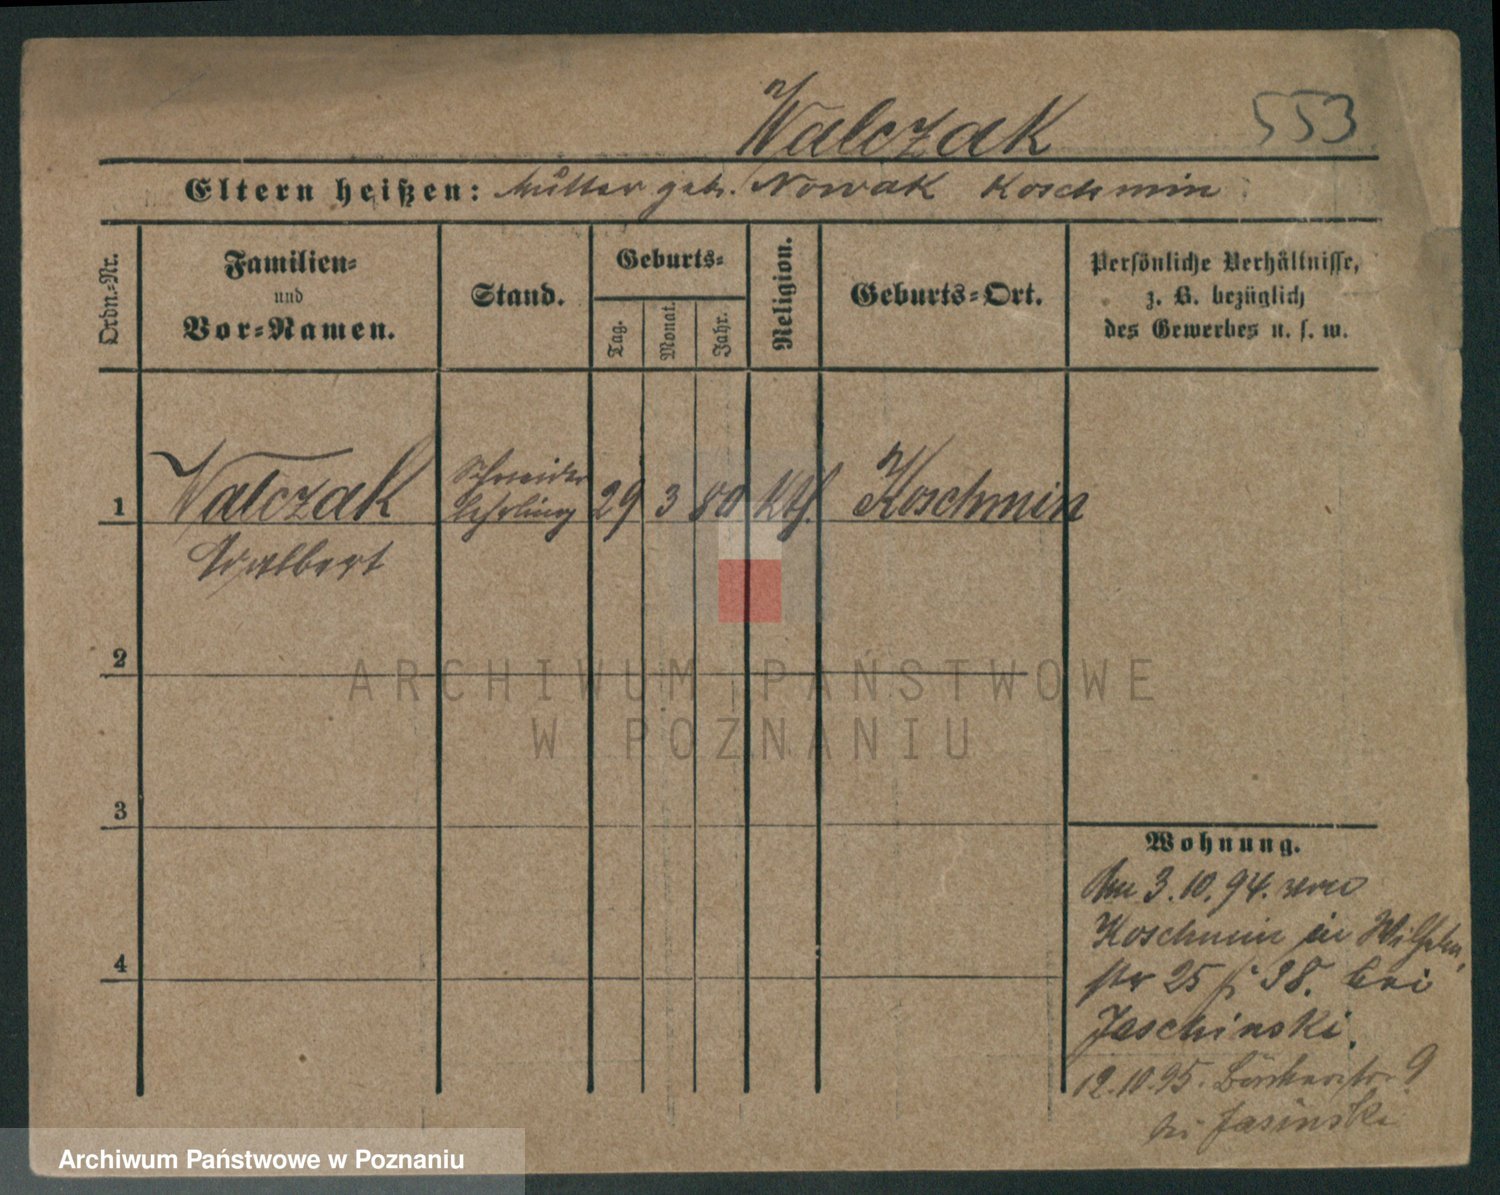 Walczak
553
Eltern heißen: Mutter geb. Nowak Koschmin
Ordn.-Nr.
Familien-
und
Vor-Namen.
Stand.
Geburts-
Tag.
Monat.
Jahr.
Religion.
Geburts-Ort.
Persönliche Verhältnisse,
z. B. bezüglich
des Gewerbes u. s. w.
1
Walczak
Adalbert
Schneider
Lehrling
29
3
80
kth.
Koschmin
2
3
4
ARCHIWUM PAŃSTWOWE
W POZNANIU
Wohnung.
3.10.94. von
Koschmin in Wilhelm
str 25 38. bei
Jaschinski.
12.10.95. 9
bei Jasinski
Archiwum Państwowe w Poznaniu